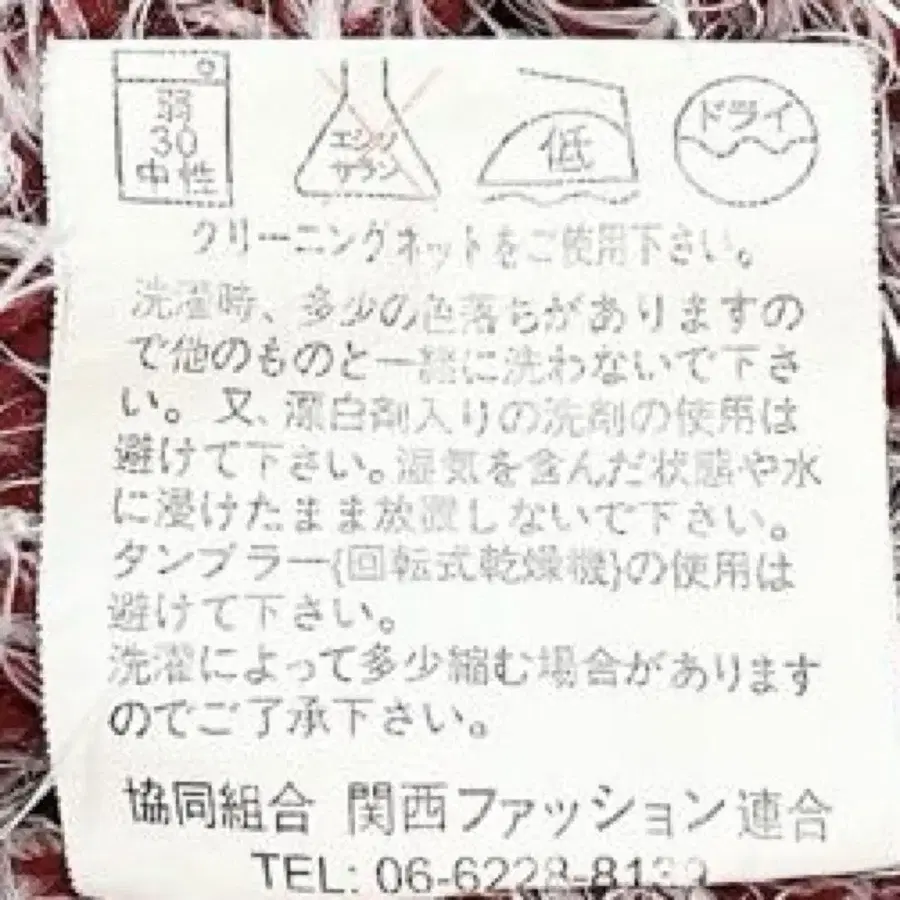 弱
30
中性
エンソ
サラシ
低
ドライ
クリーニングネットをご使用下さい。
洗濯時、多少の色落ちがありますの
で他のものと一緒に洗わないで下さ
い。又、漂白剤入りの洗剤の使用は
避けて下さい。湿気を含んだ状態や水
に浸けたまま放置しないで下さい。
タンブラー{回転式乾燥機}の使用は
避けて下さい。
洗濯によって多少縮む場合があります
のでご了承下さい。
協同組合 関西ファッション連合
TEL: 06-6228-8139